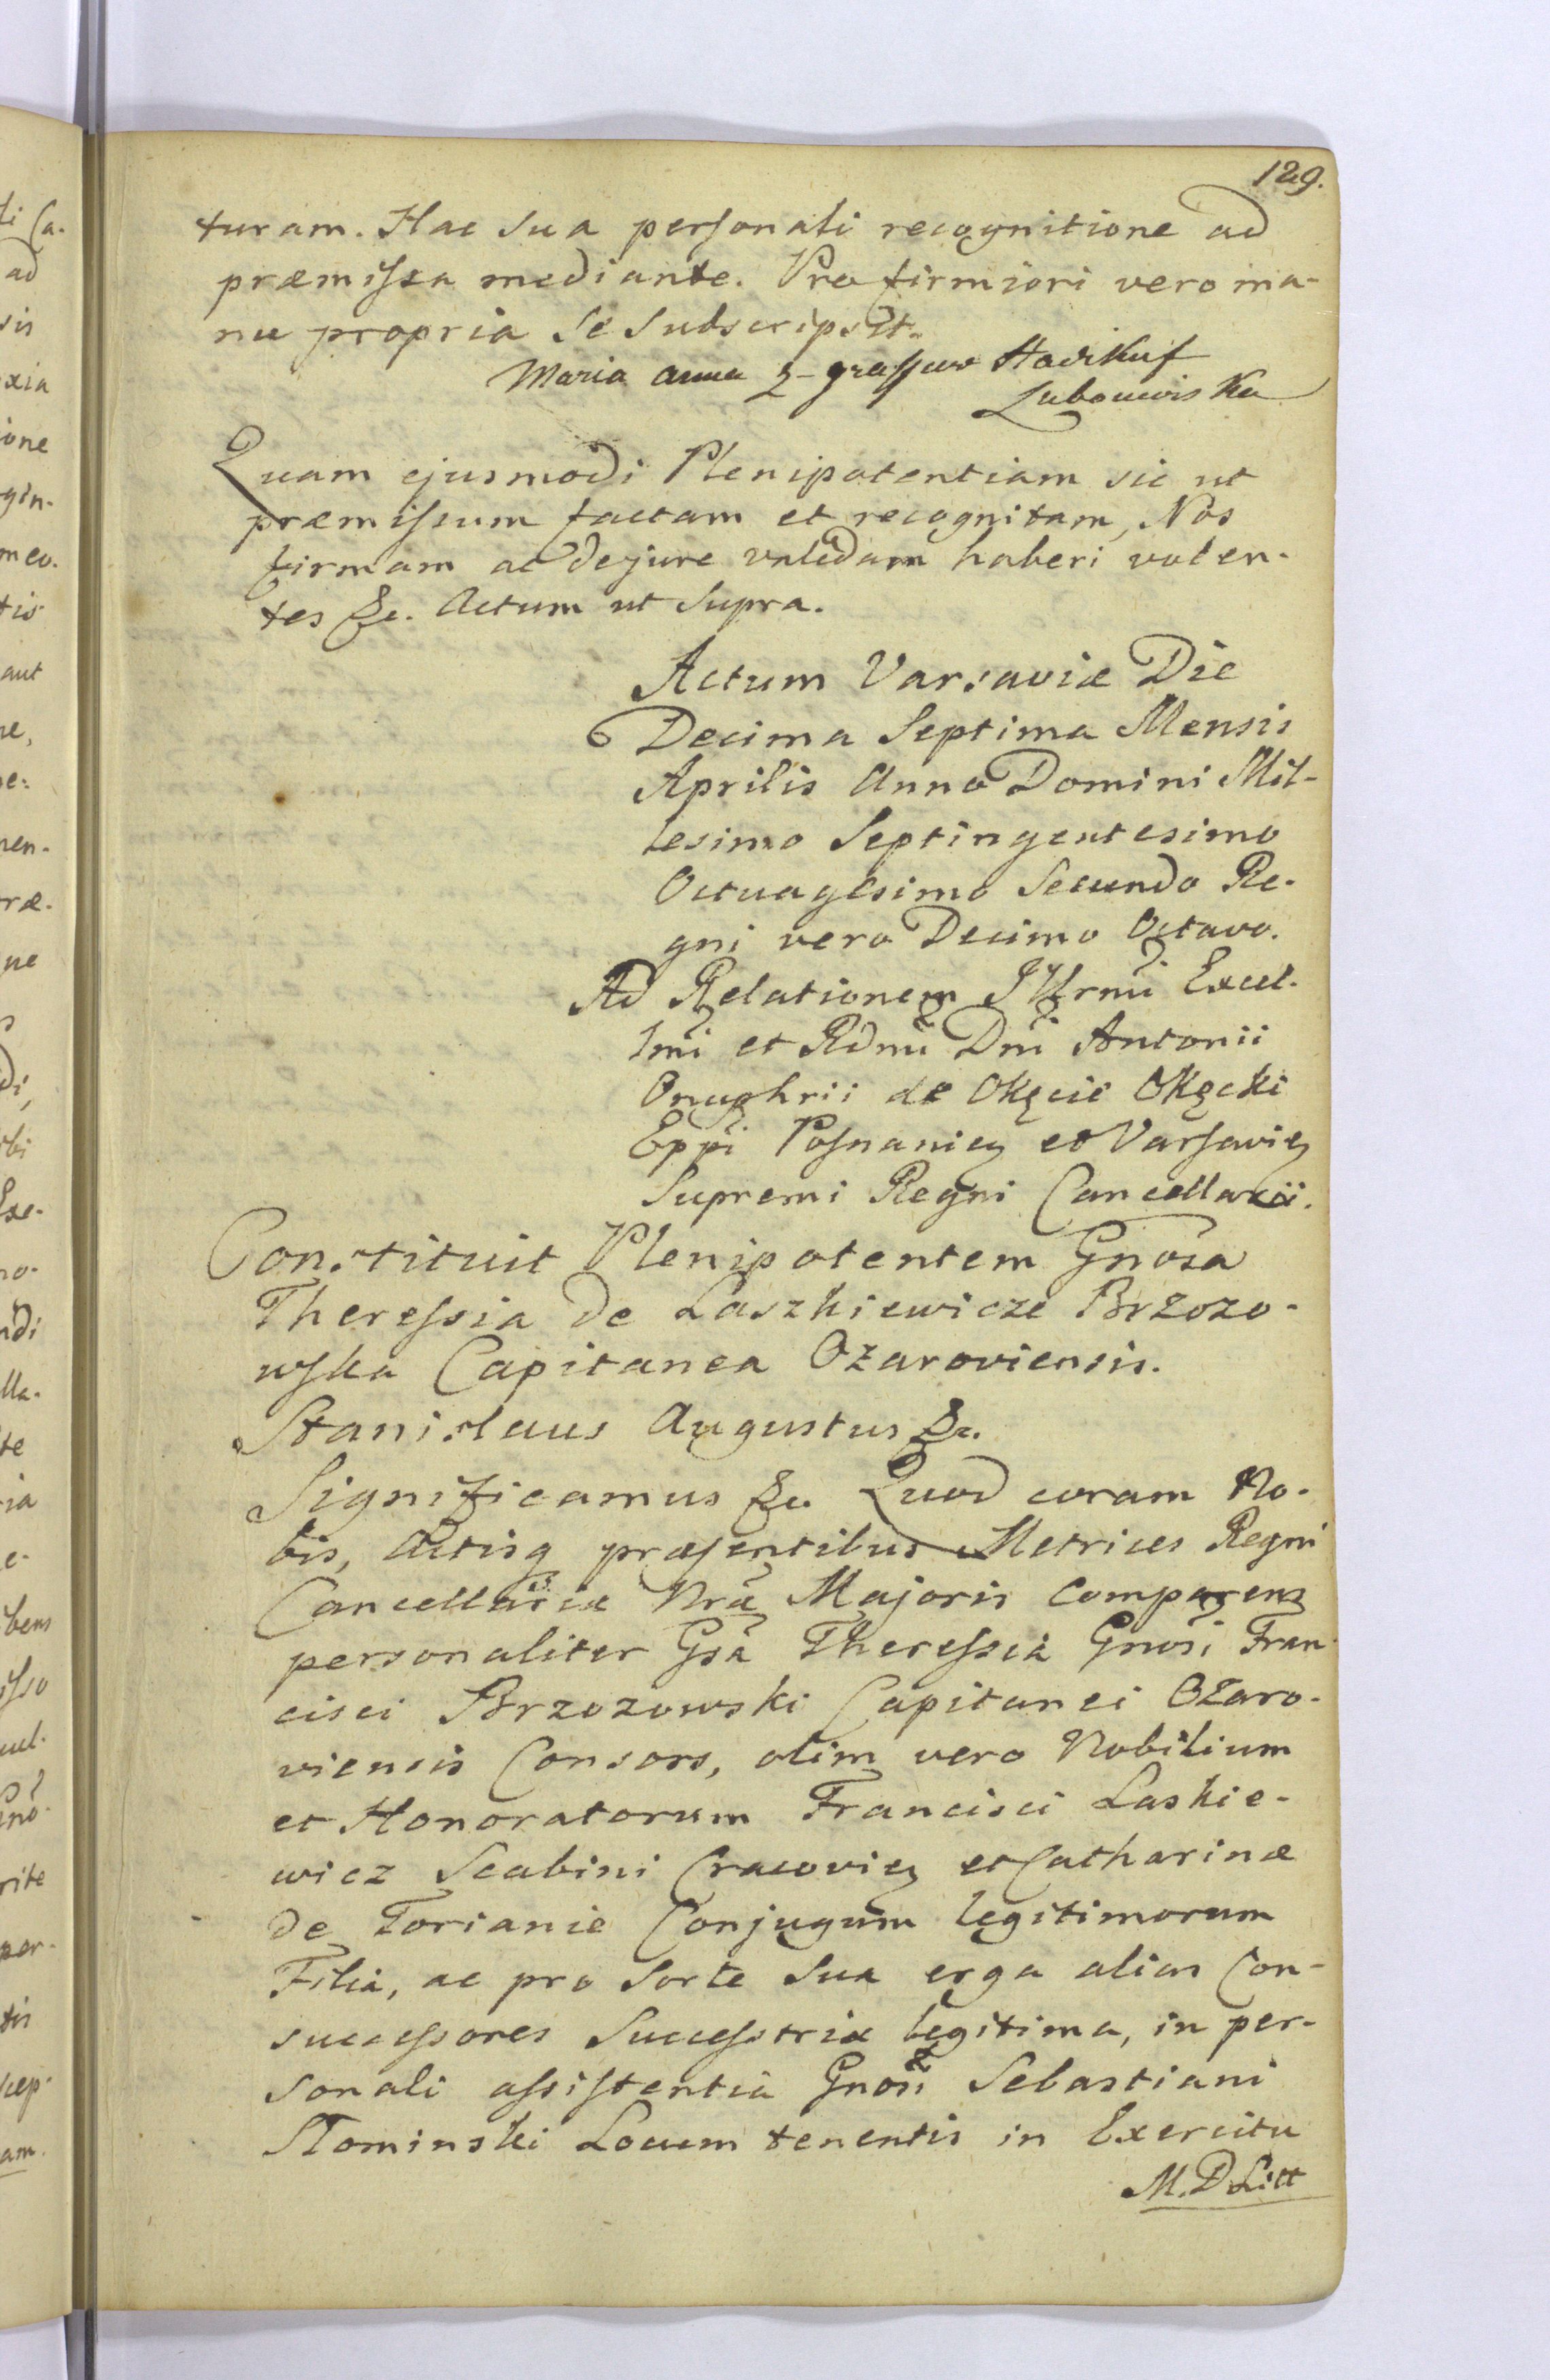 129.
turam. Hac sua personali recognitione ad
præmissa mediante. Pro firmiori vero ma-
nu propria se subscripsit.
Maria anna z
Quam ejusmodi Plenipotentiam sic ut
præmissum factam et recognitam, Nos
firmam ac de jure validam haberi volen-
tes &c. Actum ut supra.
Actum Varsaviæ Die
Decima Septima Mensis
Aprilis Anno Domini Mil-
lesimo Septingentesimo
Octuagesimo Secundo Re-
gni vero Decimo Octavo.
Ad Relationem Excel-
lmi et Rdmi Dni Antonii
Onuphrii de Okęcie Okęcki
Eppi Posnanien et Varsavien
Supremi Regni Cancellarii.
Constituit Plenipotentem Gnosa
Theressia de Laszkiewicze Brzozo-
wska Capitanea Ożaroviensis.
Stanislaus Augustus &c.
Significamus &c. Quod coram No-
bis, Actisq præsentibus Metrices Regni
Cancellariæ Nræ Majoris Comparens
personaliter Gsa Theressia Gnosi Fran-
cisci Brzozowski Capitanei Ożaro-
viensis Consors, olim vero Nobilium
et Honoratorum Francisci Laskie-
wicz Scabini Cracovien et Catharinæ
de Torianie Conjugum legitimorum
Filia, ac pro sorte sua erga alios Con-
successores Successtrix legitima, in per-
sonali assistentia Gnosi Sebastiani
Słominski Locum tenentis in Exercitu
M. D Litt
li Ca-
ad
sis
xia
ione
gin-
meo.
tis
aut
ne,
nen-
ræ-
ne
di,
bi
Exe-
no-
ndi
lla-
te
ia
e-
bens
isso
uel-
rite
per-
tis
cep-
am